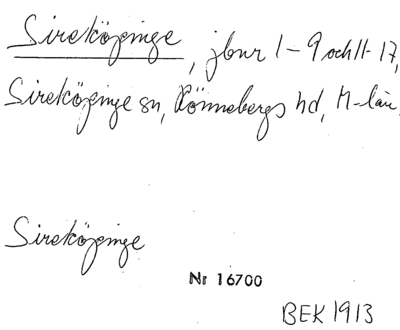 Sireköpinge, jbnr 1-9 och 11-17,
Sireköpinge sn, Rönnebergs hd, M-län.
Sireköpinge
Nr 16700
BEK 1913